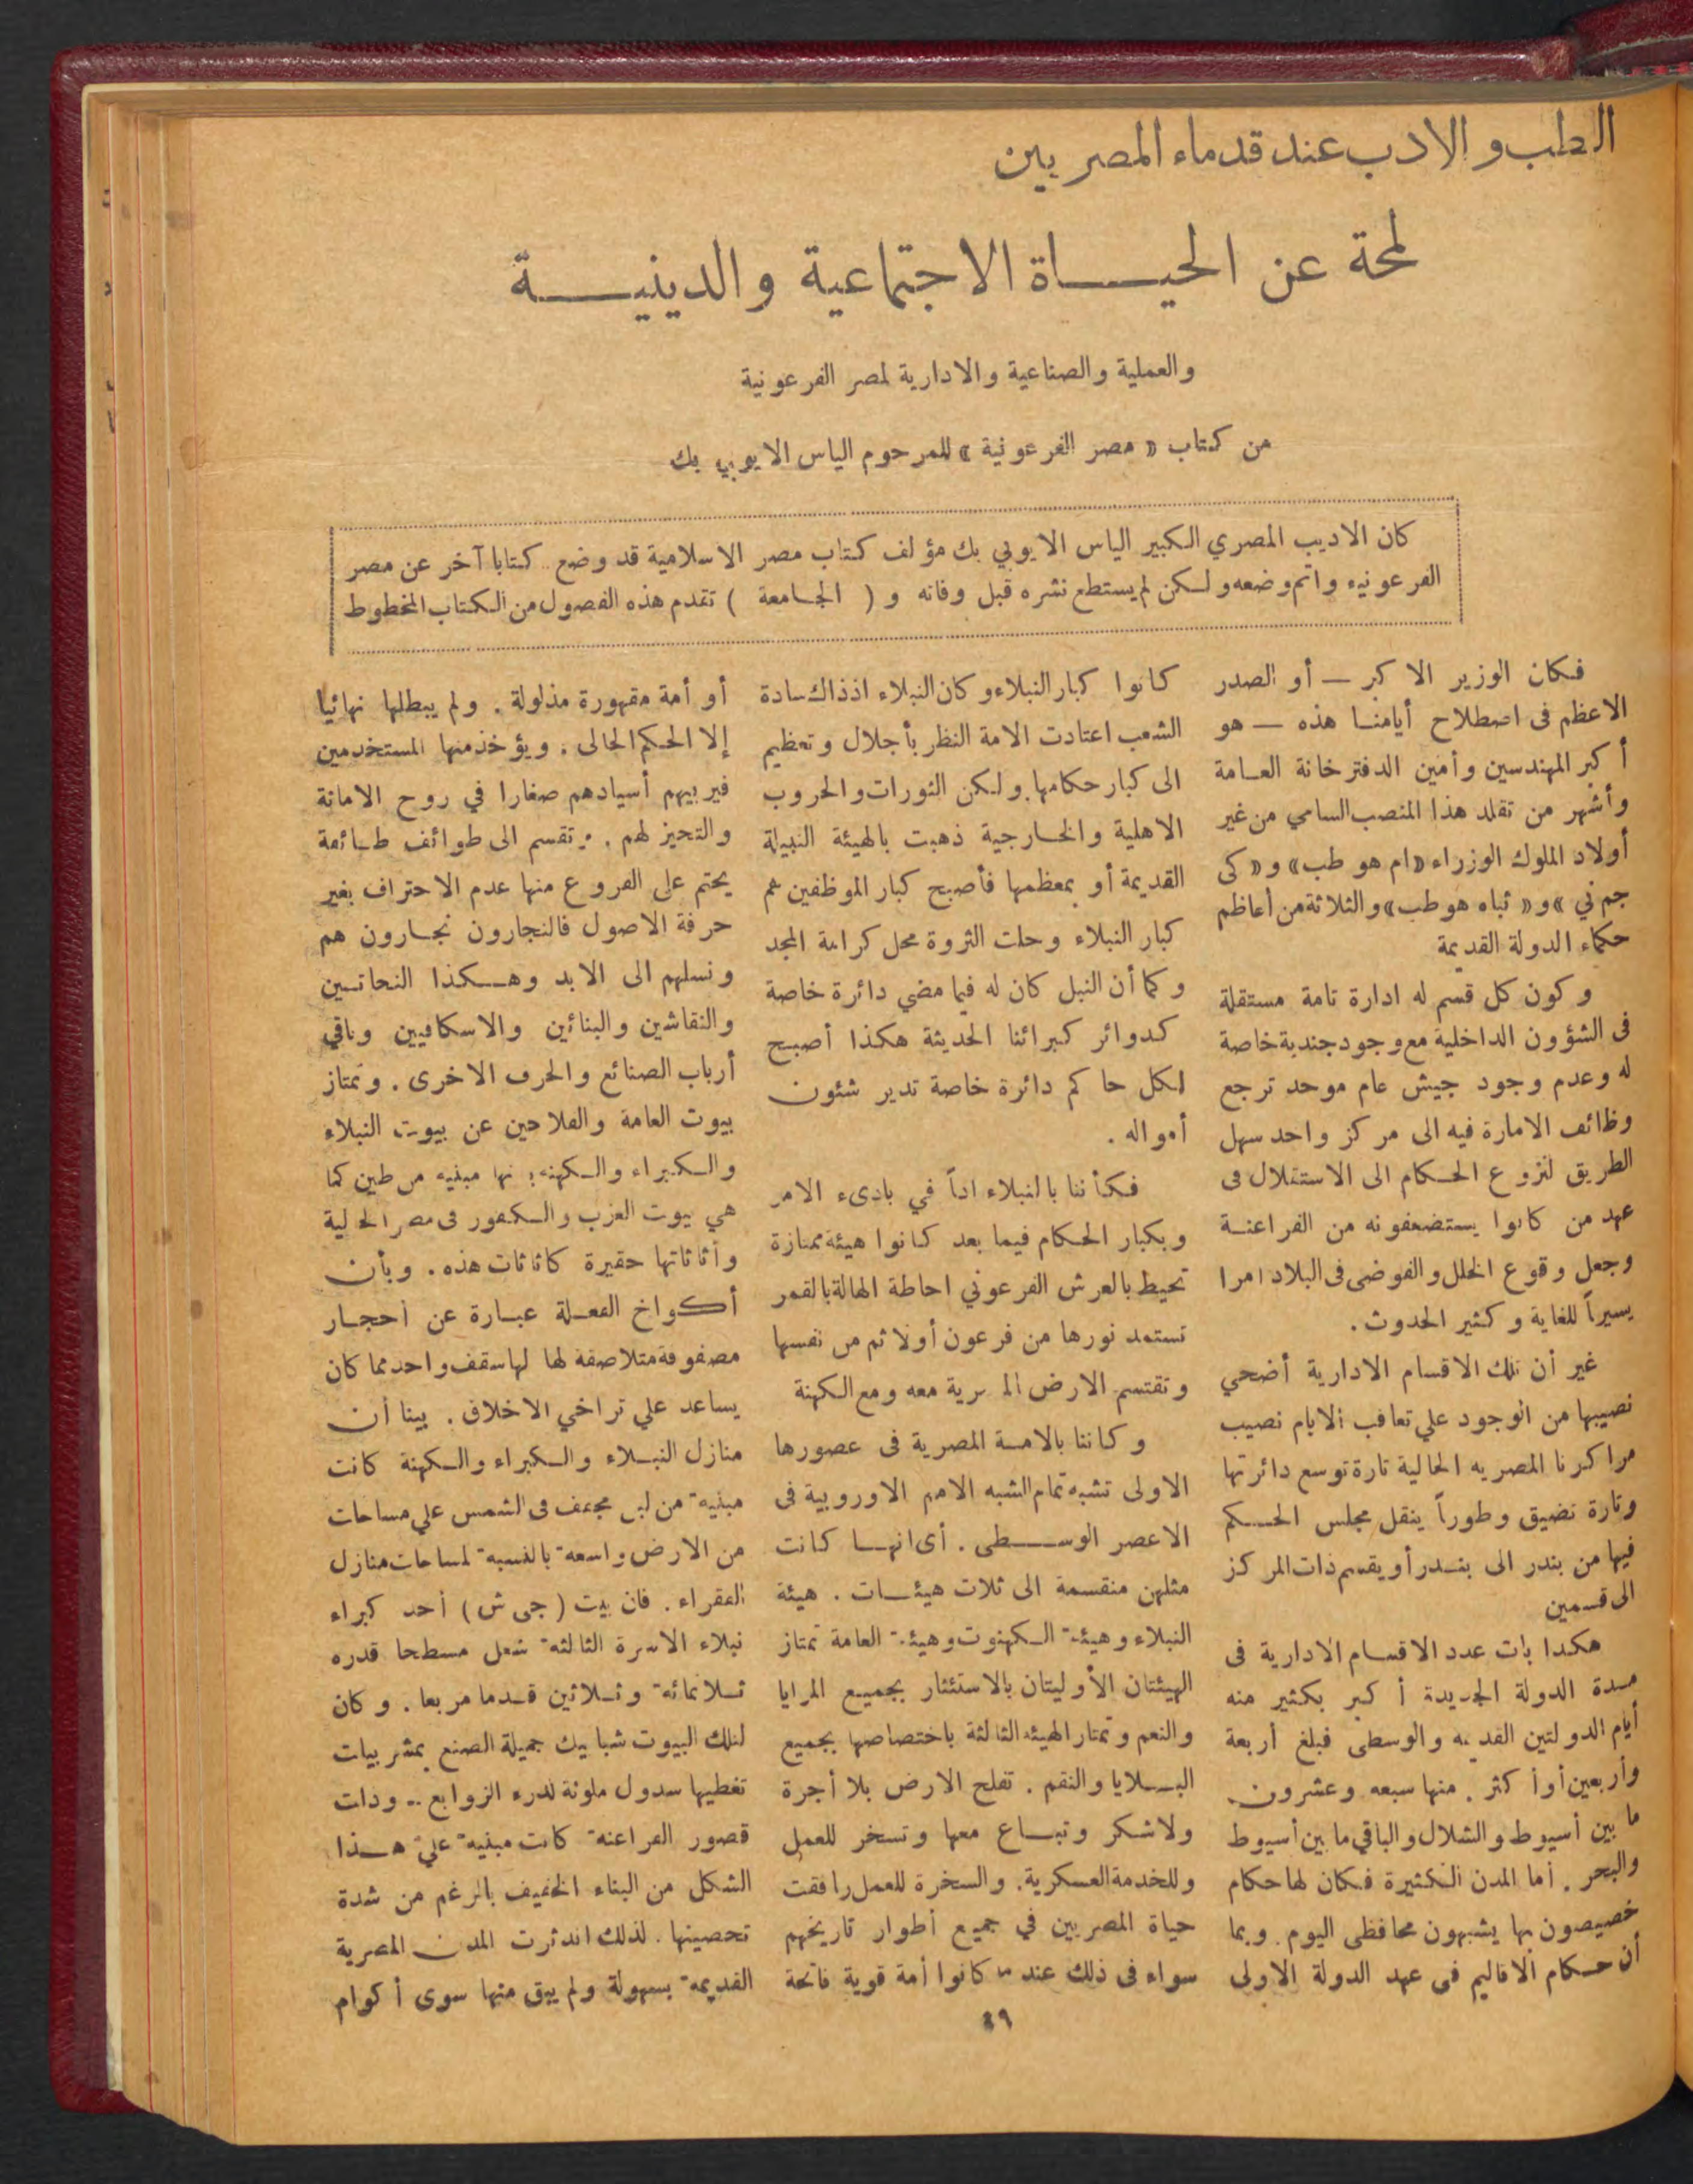 الطب والادب عند قدماء المصريين
لمحة عن الحيــاة الاجتماعية والدينيــة
والعملية والصناعية والادارية لمصر الفرعونية
من كتاب « مصر الفرعونية » للمرحوم الياس الايوبي بك
كان الاديب المصري الكبير الياس الايوبي بك مؤلف كتاب مصر الاسلامية قد وضع كتابا آخر عن مصر
الفرعونيه واتم وضعه ولكن لم يستطع نشره قبل وفاته و ( الجامعة ) تقدم هذه الفصول من الكتاب المخطوط
فكان الوزير الاكبر — أو الصدر
الاعظم فى اصطلاح أيامنا هذه — هو
أكبر المهندسين وأمين الدفترخانة العامة
وأشهر من تقلد هذا المنصب السامي من غير
أولاد الملوك الوزراء «ام هو طب» و «كى
جم ني » و « ثباه هو طب» والثلاثة من أعاظم
حكماء الدولة القديمة
وكون كل قسم له ادارة تامة مستقلة
فى الشؤون الداخلية مع وجود جندية خاصة
له وعدم وجود جيش عام موحد ترجع
وظائف الامارة فيه الى مركز واحد سهل
الطريق لنزوع الحكام الى الاستقلال فى
عهد من كانوا يستضعفونه من الفراعنة
وجعل وقوع الخلل والفوضى فى البلاد امرا
يسيراً للغاية وكثير الحدوث .
غير أن تلك الاقسام الادارية أضحي
نصيبها من الوجود علي تعاقب الايام نصيب
مراكزنا المصريه الحالية تارة توسع دائرتها
وتارة تضيق وطوراً ينقل مجلس الحكم
فيها من بندر الى بندر أو يقسم ذات المركز
الى قسمين
هكذا بات عدد الاقسام الادارية فى
مدة الدولة الجديدة أكبر بكثير منه
أيام الدولتين القديمه والوسطى فبلغ أربعة
وأربعين أو أكثر . منها سبعه وعشرون
ما بين أسيوط والشلال والباقي ما بين أسيوط
والبحر . أما المدن الكثيرة فكان لها حكام
خصيصون بها يشبهون محافظى اليوم . وبما
أن حكام الاقاليم فى عهد الدولة الاولى
كانوا كبار النبلاء وكان النبلاء اذذاك سادة
الشعب اعتادت الامة النظر بأجلال وتعظيم
الى كبار حكامها . ولكن الثورات والحروب
الاهلية والخارجية ذهبت بالهيئة النبيلة
القديمة أو بمعظمها فأصبح كبار الموظفين هم
كبار النبلاء وحلت الثروة محل كرامة المجد
وكما أن النبل كان له فيما مضي دائرة خاصة
كدوائر كبرائنا الحديثة هكذا أصبح
لكل حاكم دائرة خاصة تدير شئون
أمواله .
فكأننا بالنبلاء اذاً في بادىء الامر
وبكبار الحكام فيما بعد كانوا هيئة ممتازة
تحيط بالعرش الفرعوني احاطة الهالة بالقمر
تستمد نورها من فرعون أولا ثم من نفسها
وتقتسم الارض المصرية معه ومع الكهنة
وكاننا بالامة المصرية فى عصورها
الاولى تشبه تمام الشبه الامم الاوروبية فى
الاعصر الوسطى . أى انها كانت
مثلهن منقسمة الى ثلاث هيئات . هيئة
النبلاء وهيئة الكهنوت وهيئة العامة تمتاز
الهيئتان الأوليتان بالاستئثار بجميع المزايا
والنعم وتمتاز الهيئه الثالثة باختصاصها بجميع
البلايا والنقم . تفلح الارض بلا أجرة
ولا شكر وتباع معها وتسخر للعمل
وللخدمة العسكرية . والسخرة للعمل رافقت
حياة المصريين في جميع أطوار تاريخهم
سواء فى ذلك عند ما كانوا أمة قوية فاتحة
أو أمة مقهورة مذلولة . ولم يبطلها نهائيا
إلا الحكم الحالى . ويؤخذ منها المستخدمين
فيربيهم أسيادهم صغارا في روح الامانة
والتحيز لهم . وتقسم الى طوائف طائفة
يحتم على الفروع منها عدم الاحتراف بغير
حرفة الاصول فالنجارون نجارون هم
ونسلهم الى الابد وهكذا النحاتين
والنقاشين والبنائين والاسكافيين وباقي
أرباب الصنائع والحرف الاخرى . وتمتاز
بيوت العامة والفلاحين عن بيوت النبلاء
والكبراء والكهنه بانها مبنيه من طين كما
هي بيوت العزب والكفور فى مصر الحالية
وأثاثاتها حقيرة كاثاثات هذه . وبأن
أكواخ الفعلة عبارة عن أحجار
مصفوفة متلاصقة لها لها سقف واحد مما كان
يساعد علي تراخي الاخلاق . بينا أن
منازل النبلاء والكبراء والكهنة كانت
مبنية من لبن مجفف فى الشمس علي مساحات
من الارض واسعة بالنسبة لمساحات منازل
الفقراء . فان بيت ( جى ش ) أحد كبراء
نبلاء الاسرة الثالثة شغل مسطحا قدره
ثلاثمائة وثلاثين قدما مربعا . وكان
لتلك البيوت شبابيك جميلة الصنع بمشربيات
تغطيها سدول ملونة لدرء الزوابع .. وذات
قصور الفراعنة كانت مبنية علي هذا
الشكل من البناء الخفيف بالرغم من شدة
تحصينها . لذلك اندثرت المدن المصرية
القديمة بسهولة ولم يبق منها سوى أكوام
٤٩